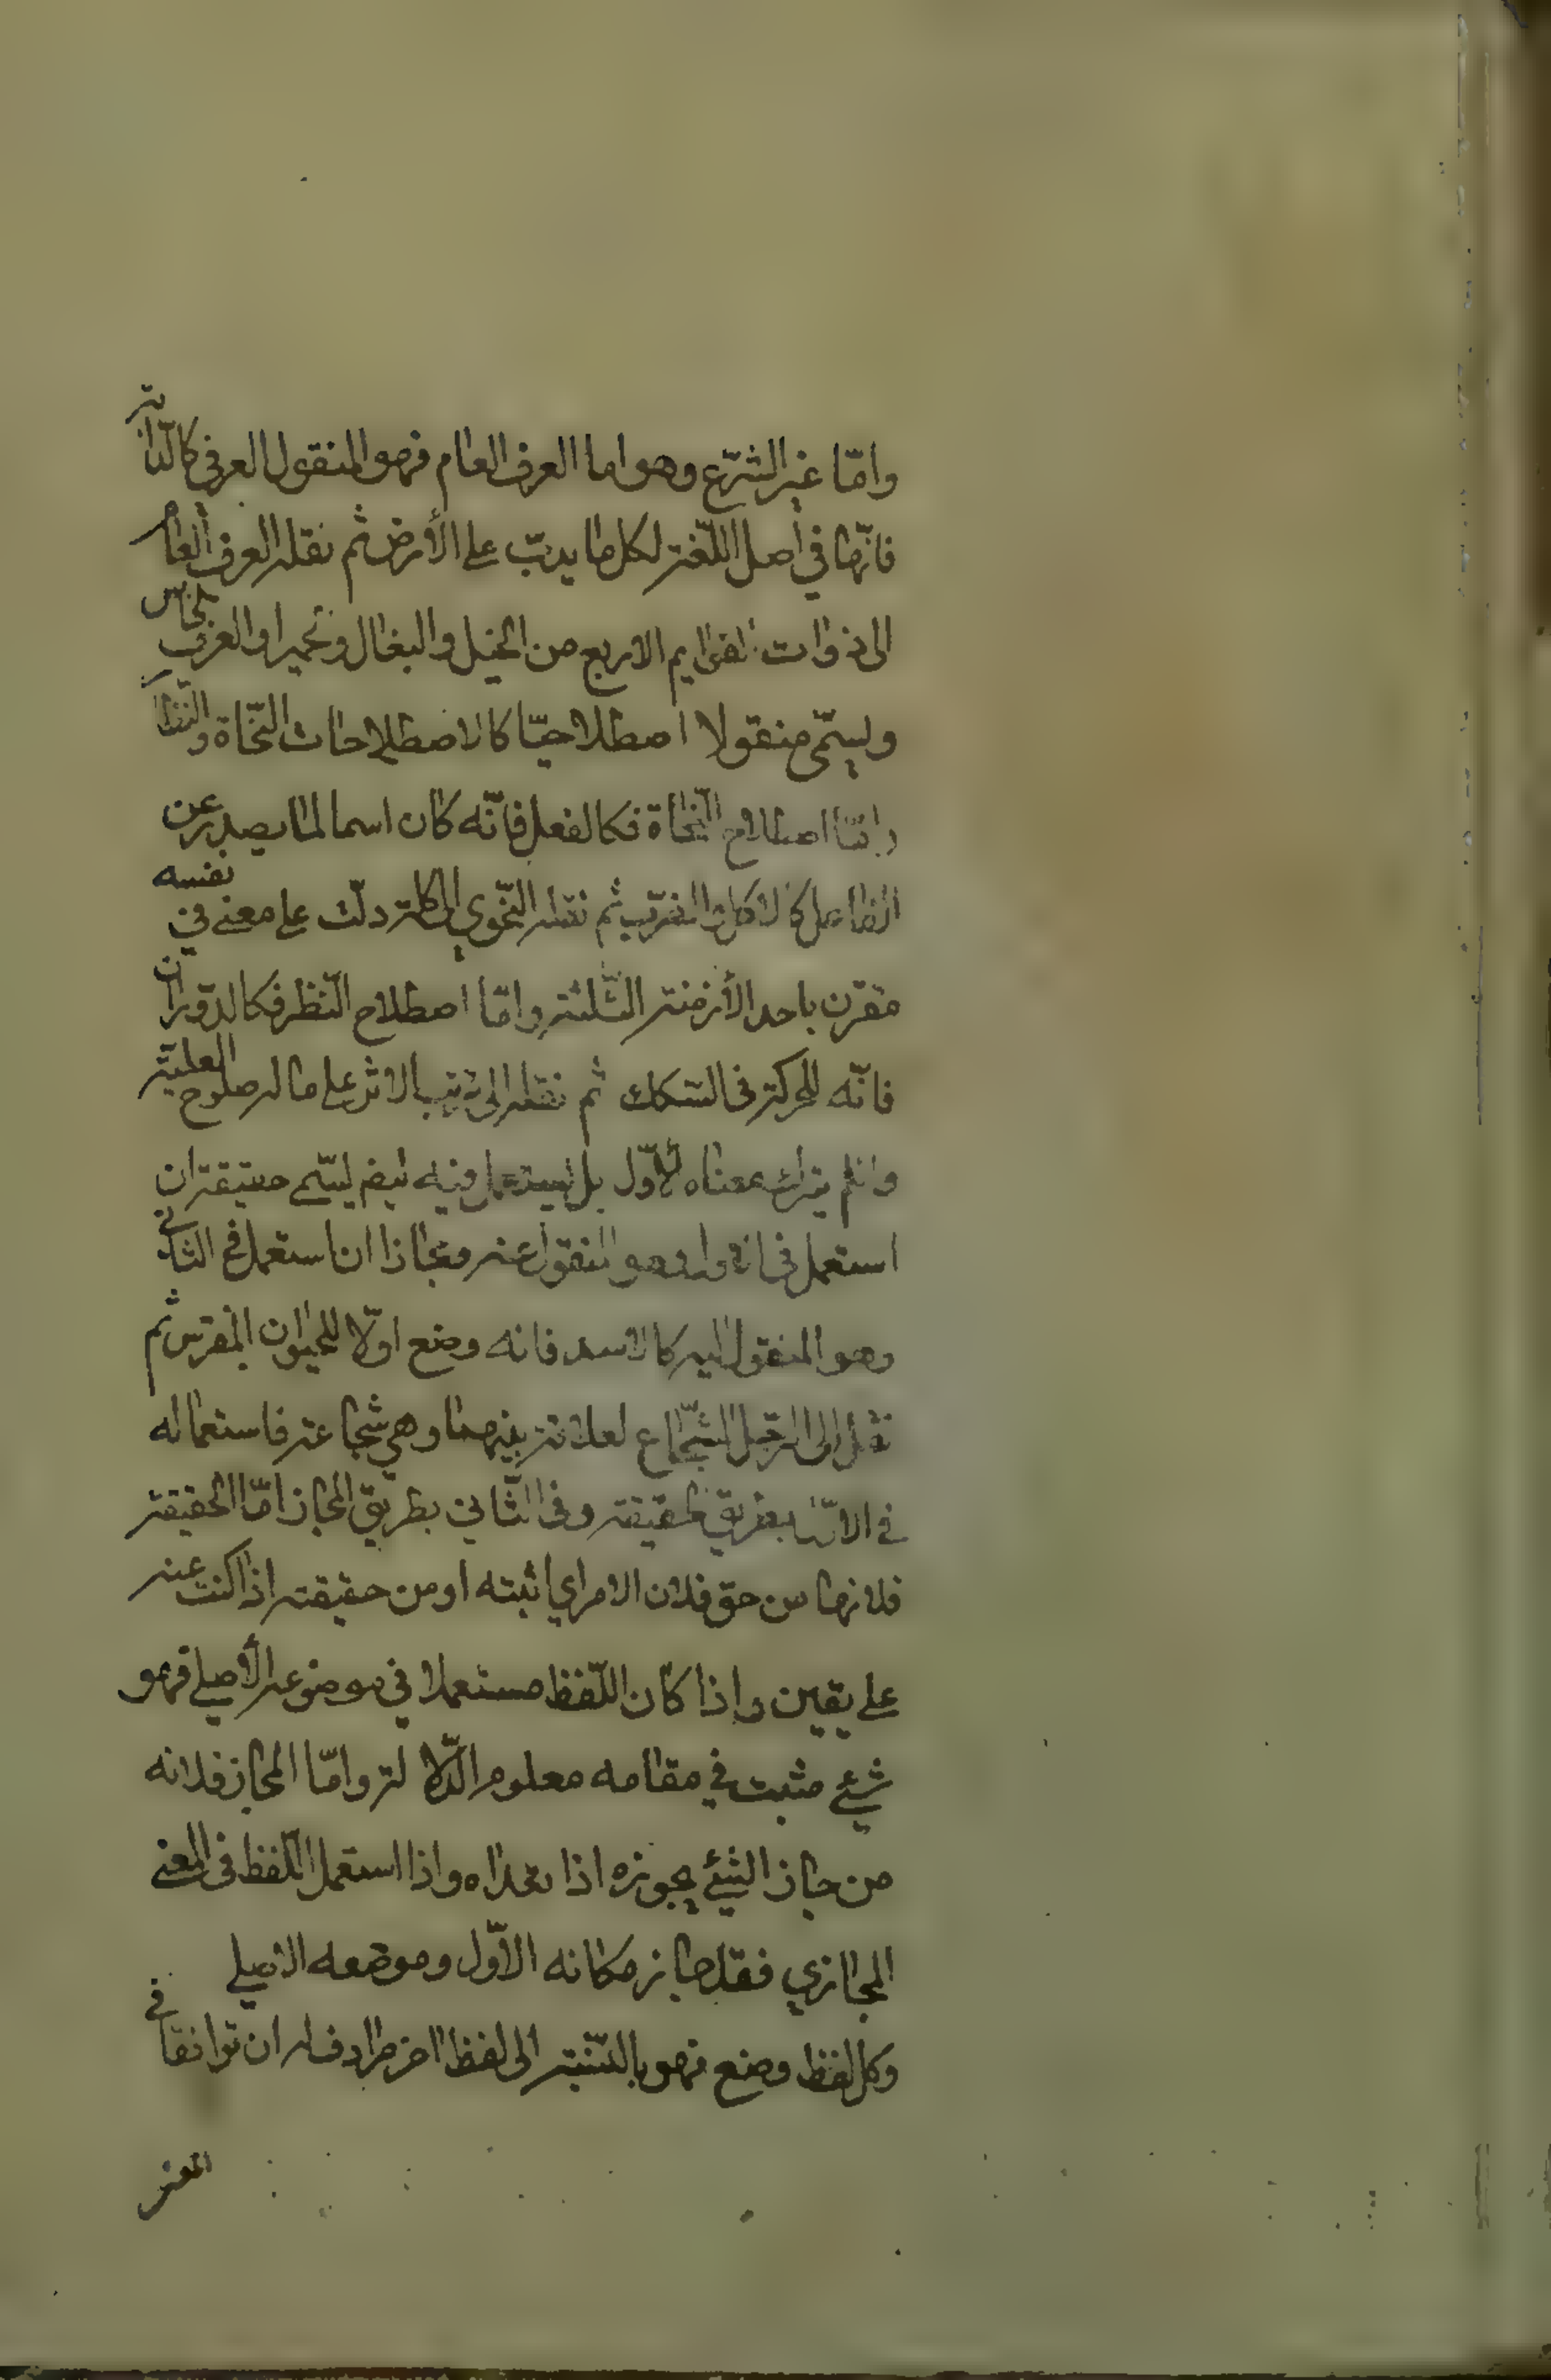 وامّا غير الشّرع وهو اما العرف العام فهو المنقول العرفي كالدّابة
فانّها في اصل اللّغة لكل ما يدبّ على الأرض ثم نقله العرف العام
الى ذوات القوايم الاربع من الخيل والبغال والحمير او العرف الخاصّ
ويسمّى منقولا اصطلاحيّا كالاصطلاحات النّحاة والنّظار
وامّا اصطلاح النّحاة فكالفعل فانّه كان اسما لما يصدر عن
الفاعل كالاكل والضّرب ثم نقله النّحوي الى كلمة دلّت على معنى في نفسه
مقترن باحد الأزمنة الثّلثة وامّا اصطلاح النّظر فكالدّوران
فانّه للحركة في السّكك ثم نقله الى ترتب الاثر على ما له صلوح العليّة
وان لم يترك معناه الاوّل بل يستعمل فيه ايضا يسمّى حقيقة ان
استعمل في الاول وهو المنقول عنه ومجازا ان استعمل في الثاني
وهو المنقول اليه كالاسد فانه وضع اوّلا للحيوان المفترس ثم
نقل الى الرّجل الشّجاع لعلاقة بينهما وهي شجاعة فاستعماله
في الاوّل بطريق الحقيقة وفى الثّاني بطريق المجاز امّا الحقيقة
فلانها من حق فلان الامر اي اثبته او من حقيقته اذا كنت عنه
على يقين واذا كان اللّفظ مستعملا في موضوعه الأصلي فهو
شيئ مثبت في مقامه معلوم الدّلالة وامّا المجاز فلانه
من جاز الشيئ يجوزه اذا تعداه واذا استعمل اللّفظ فى المعنى
المجازي فقد جاز مكانه الاوّل وموضعه الاصلي
وكل لفظ وضع فهو بالنّسبة الى لفظ اخر مرادف له ان توافقا في
المعنى